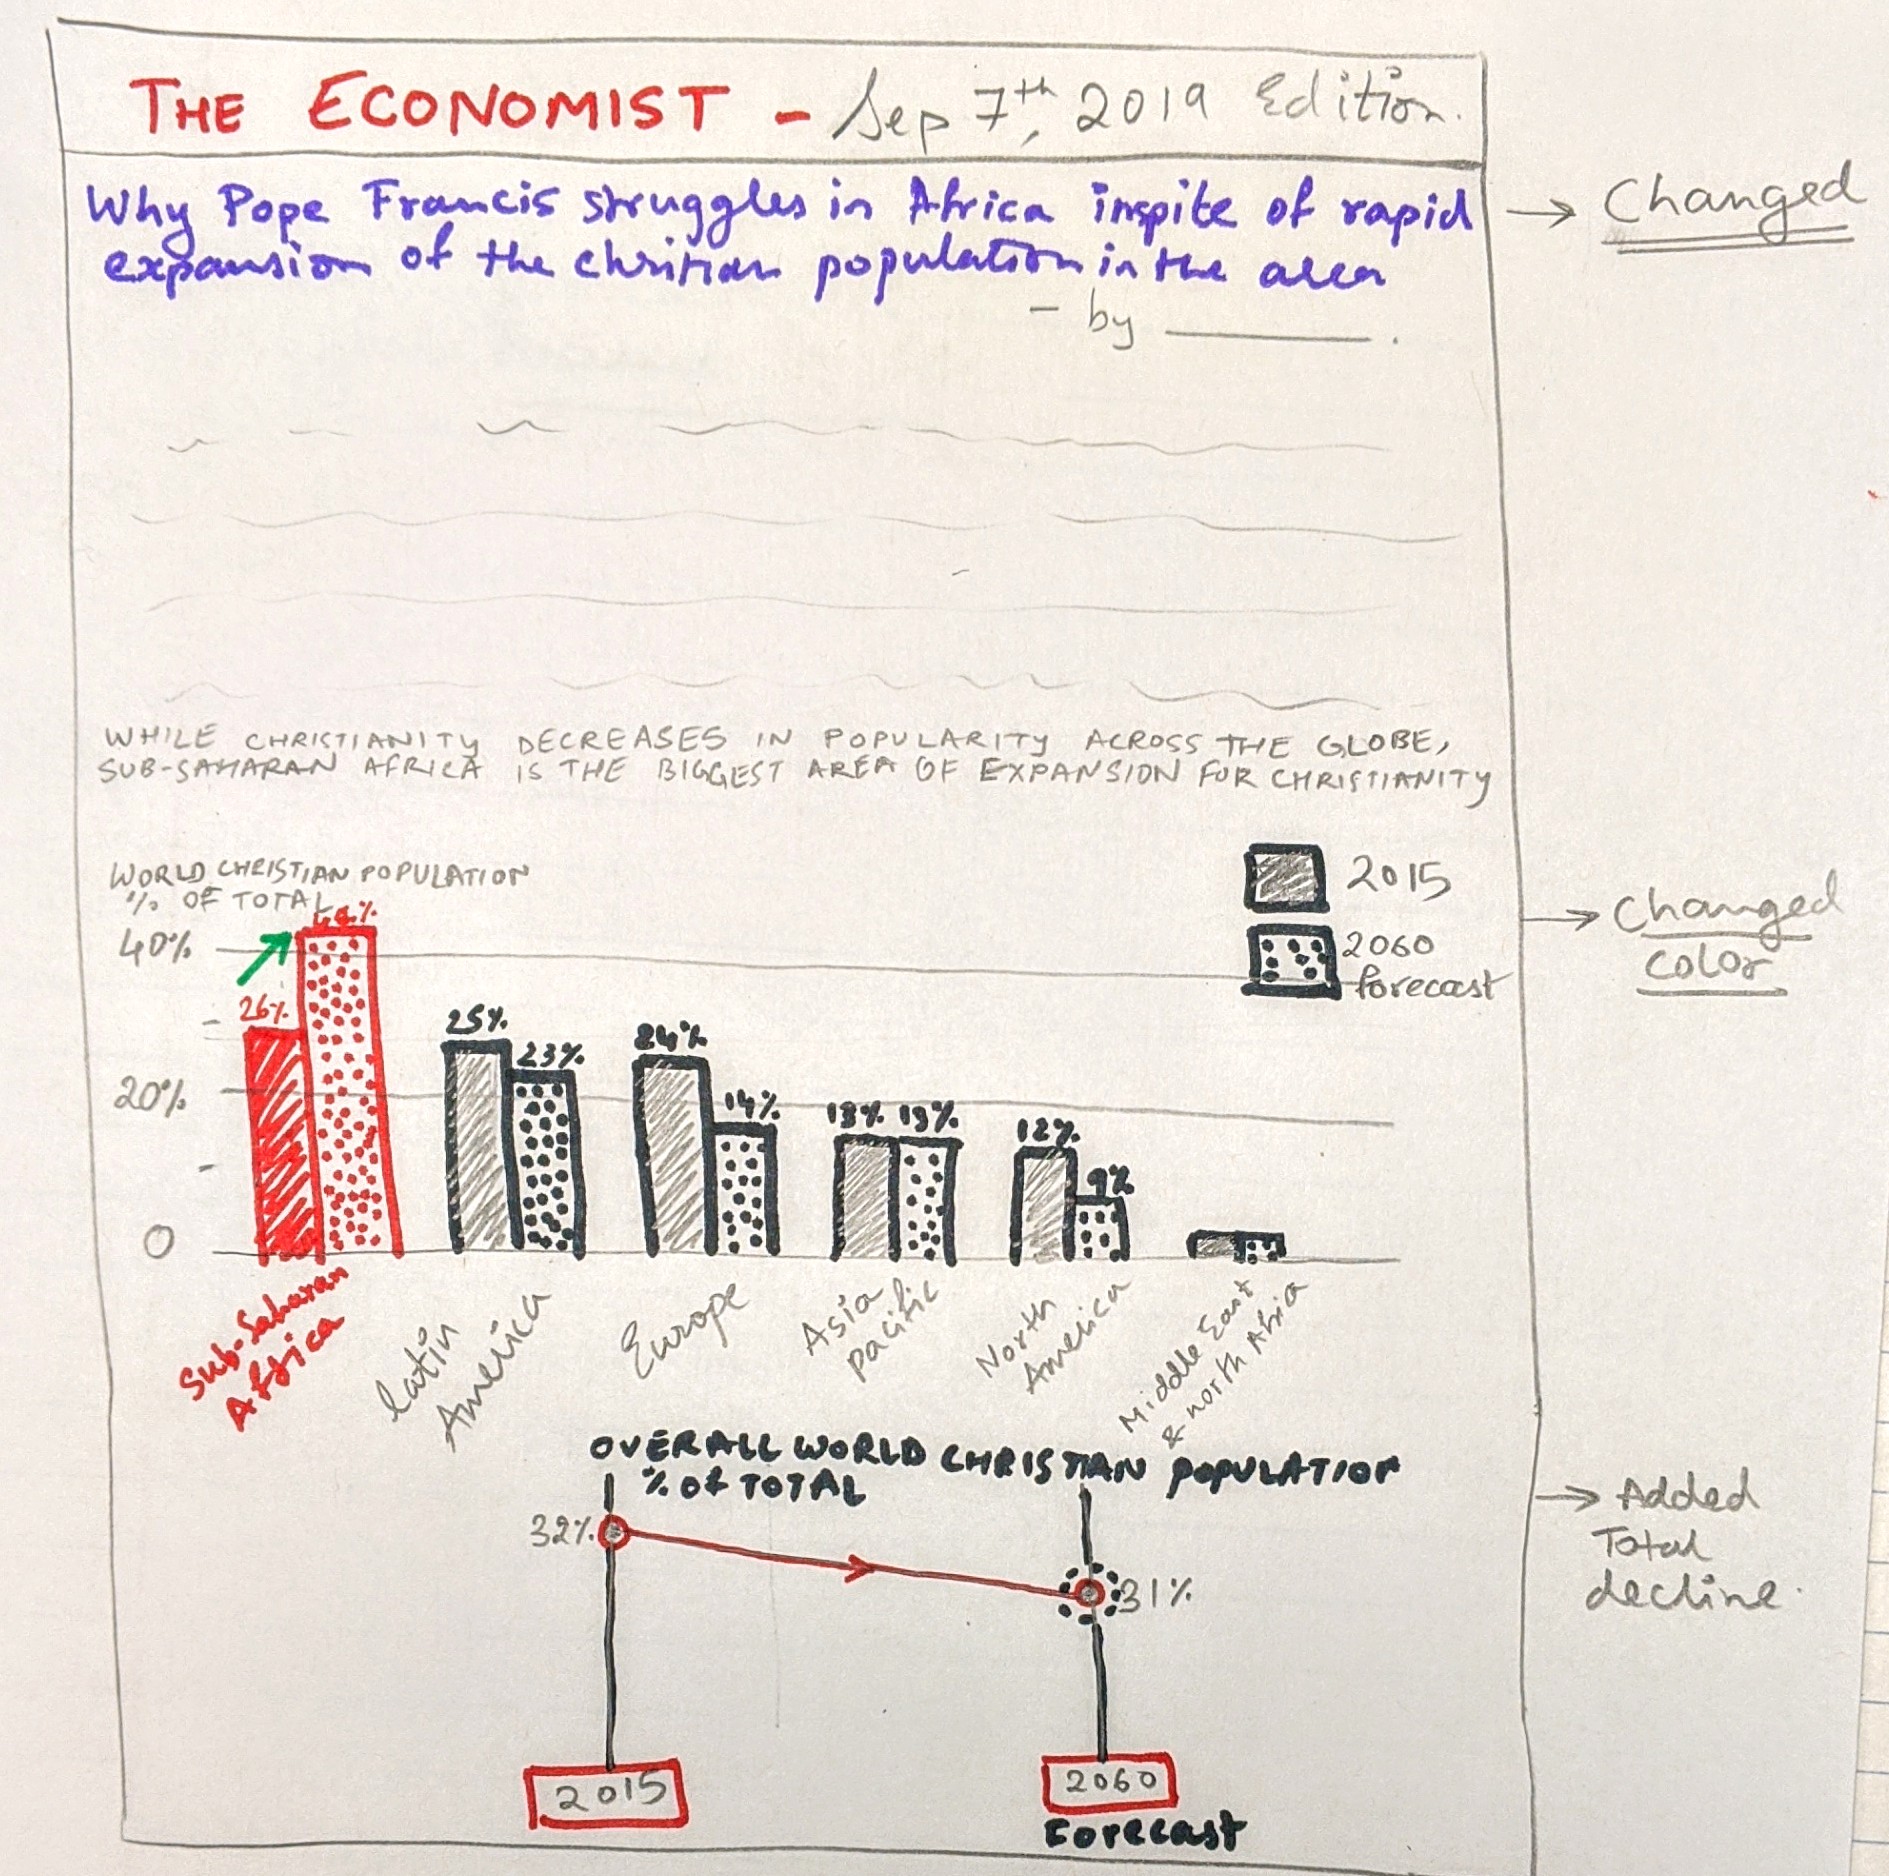 THE ECONOMIST - Sep 7th, 2019 Edition.
Why Pope Francis struggles in Africa inspite of rapid
expansion of the christian population in the area
- by
Changed
WHILE CHRISTIANITY DECREASES IN POPULARITY ACROSS THE GLOBE,
SUB-SAHARAN AFRICA IS THE BIGGEST AREA OF EXPANSION FOR CHRISTIANITY
WORLD CHRISTIAN POPULATION
% OF TOTAL
2015
2060
forecast
Changed
color
40%
20%
0
26%
25%
23%
24%
14%
13%
13%
12%
9%
Sub-Saharan
Africa
Latin
America
Europe
Asia
Pacific
North
America
Middle East
& north Africa
OVERALL WORLD CHRISTIAN POPULATION
% OF TOTAL
32%
31%
Added
Total
decline.
2015
2060
Forecast